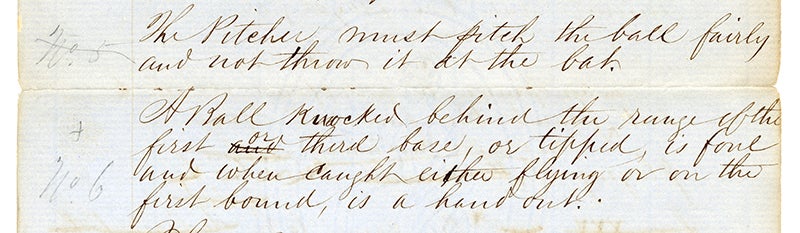 No. 5
The Pitcher must pitch the ball fairly
and not throw it at the bat.
A Ball Knocked behind the range of the
first and or third base, or tipped, is foul
No. 6
and when caught either flying or on the
first bound, is a hand out.